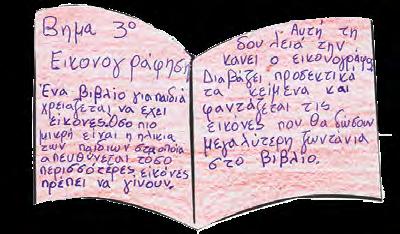 Βημα 3°
Εικονογράφηση
Ένα βιβλίο για παιδιά
χρειάζεται να έχει
εικόνες. Όσο πιο
μικρή είναι η ηλικία
των παιδιών στα οποία
απευθύνεται τόσο
περισσότερες εικόνες
πρέπει να γίνουν.
Αυτή τη
δουλειά την
κάνει ο εικονογράφος
Διαβάζει προσεκτικά
τα κείμενα και
φαντάζεται τις
εικόνες που θα δώσουν
μεγαλύτερη ζωντάνια
στο βιβλίο.